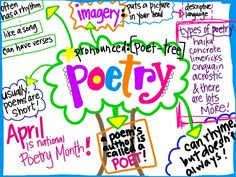 often
has a rhythm
like a song
can have verses
imagery:
puts a picture
in your head
descriptive
language
pronounced [Poet-tree]
poetry
types of poetry:
haiku
concrete
limericks
cinquain
acrostic
& there
are lots
MORE!
usually
poems are
short!
April
is national
Poetry Month!
a
poem's
author is
called a
POET!
can rhyme
but doesn't
always!